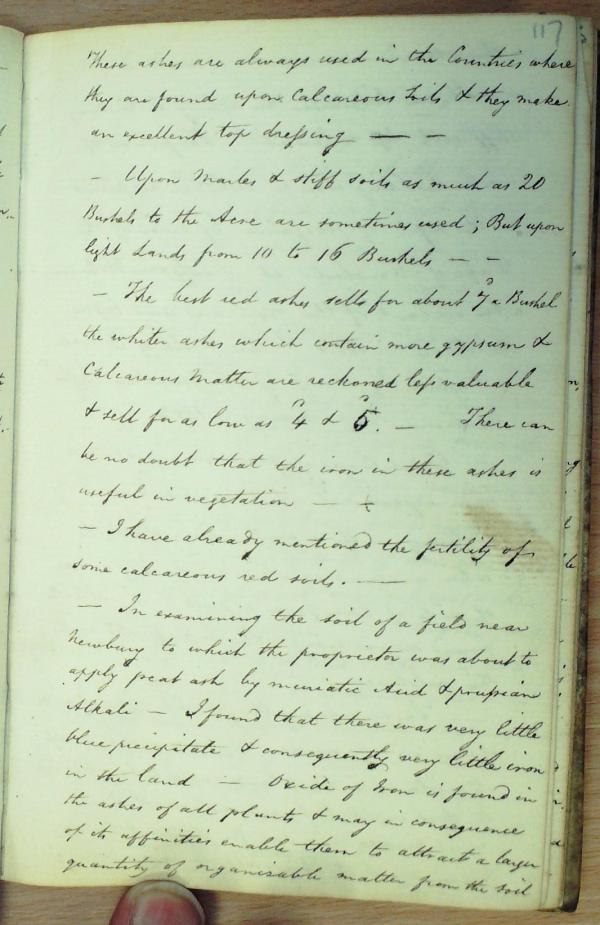 117
These ashes are always used in the Countries where
they are found upon Calcareous Soils & they make
an excellent top dressing — –
– Upon Marles & stiff soils as much as 20
Bushels to the Acre are sometimes used ; But upon
light Lands from 10 to 16 Bushels – –
– The best red ashes sells for about 7 a Bushel
the whiter ashes which contain more gypsum &
Calcareous Matter are reckoned less valuable
& sell for as low as 4 & 5. – There can
be no doubt that the iron in these ashes is
useful in vegetation – –
– I have already mentioned the fertility of
some calcareous red soils. —
– In examining the soil of a field near
Newbury to which the proprietor was about to
apply peat ash by muriatic Acid & prussian
Alkali – I found that there was very little
blue precipitate & consequently very little iron
in the land – Oxide of Iron is found in
the ashes of all plants & may in consequence
of its affinities enable them to attract a larger
quantity of organizable matter from the soil